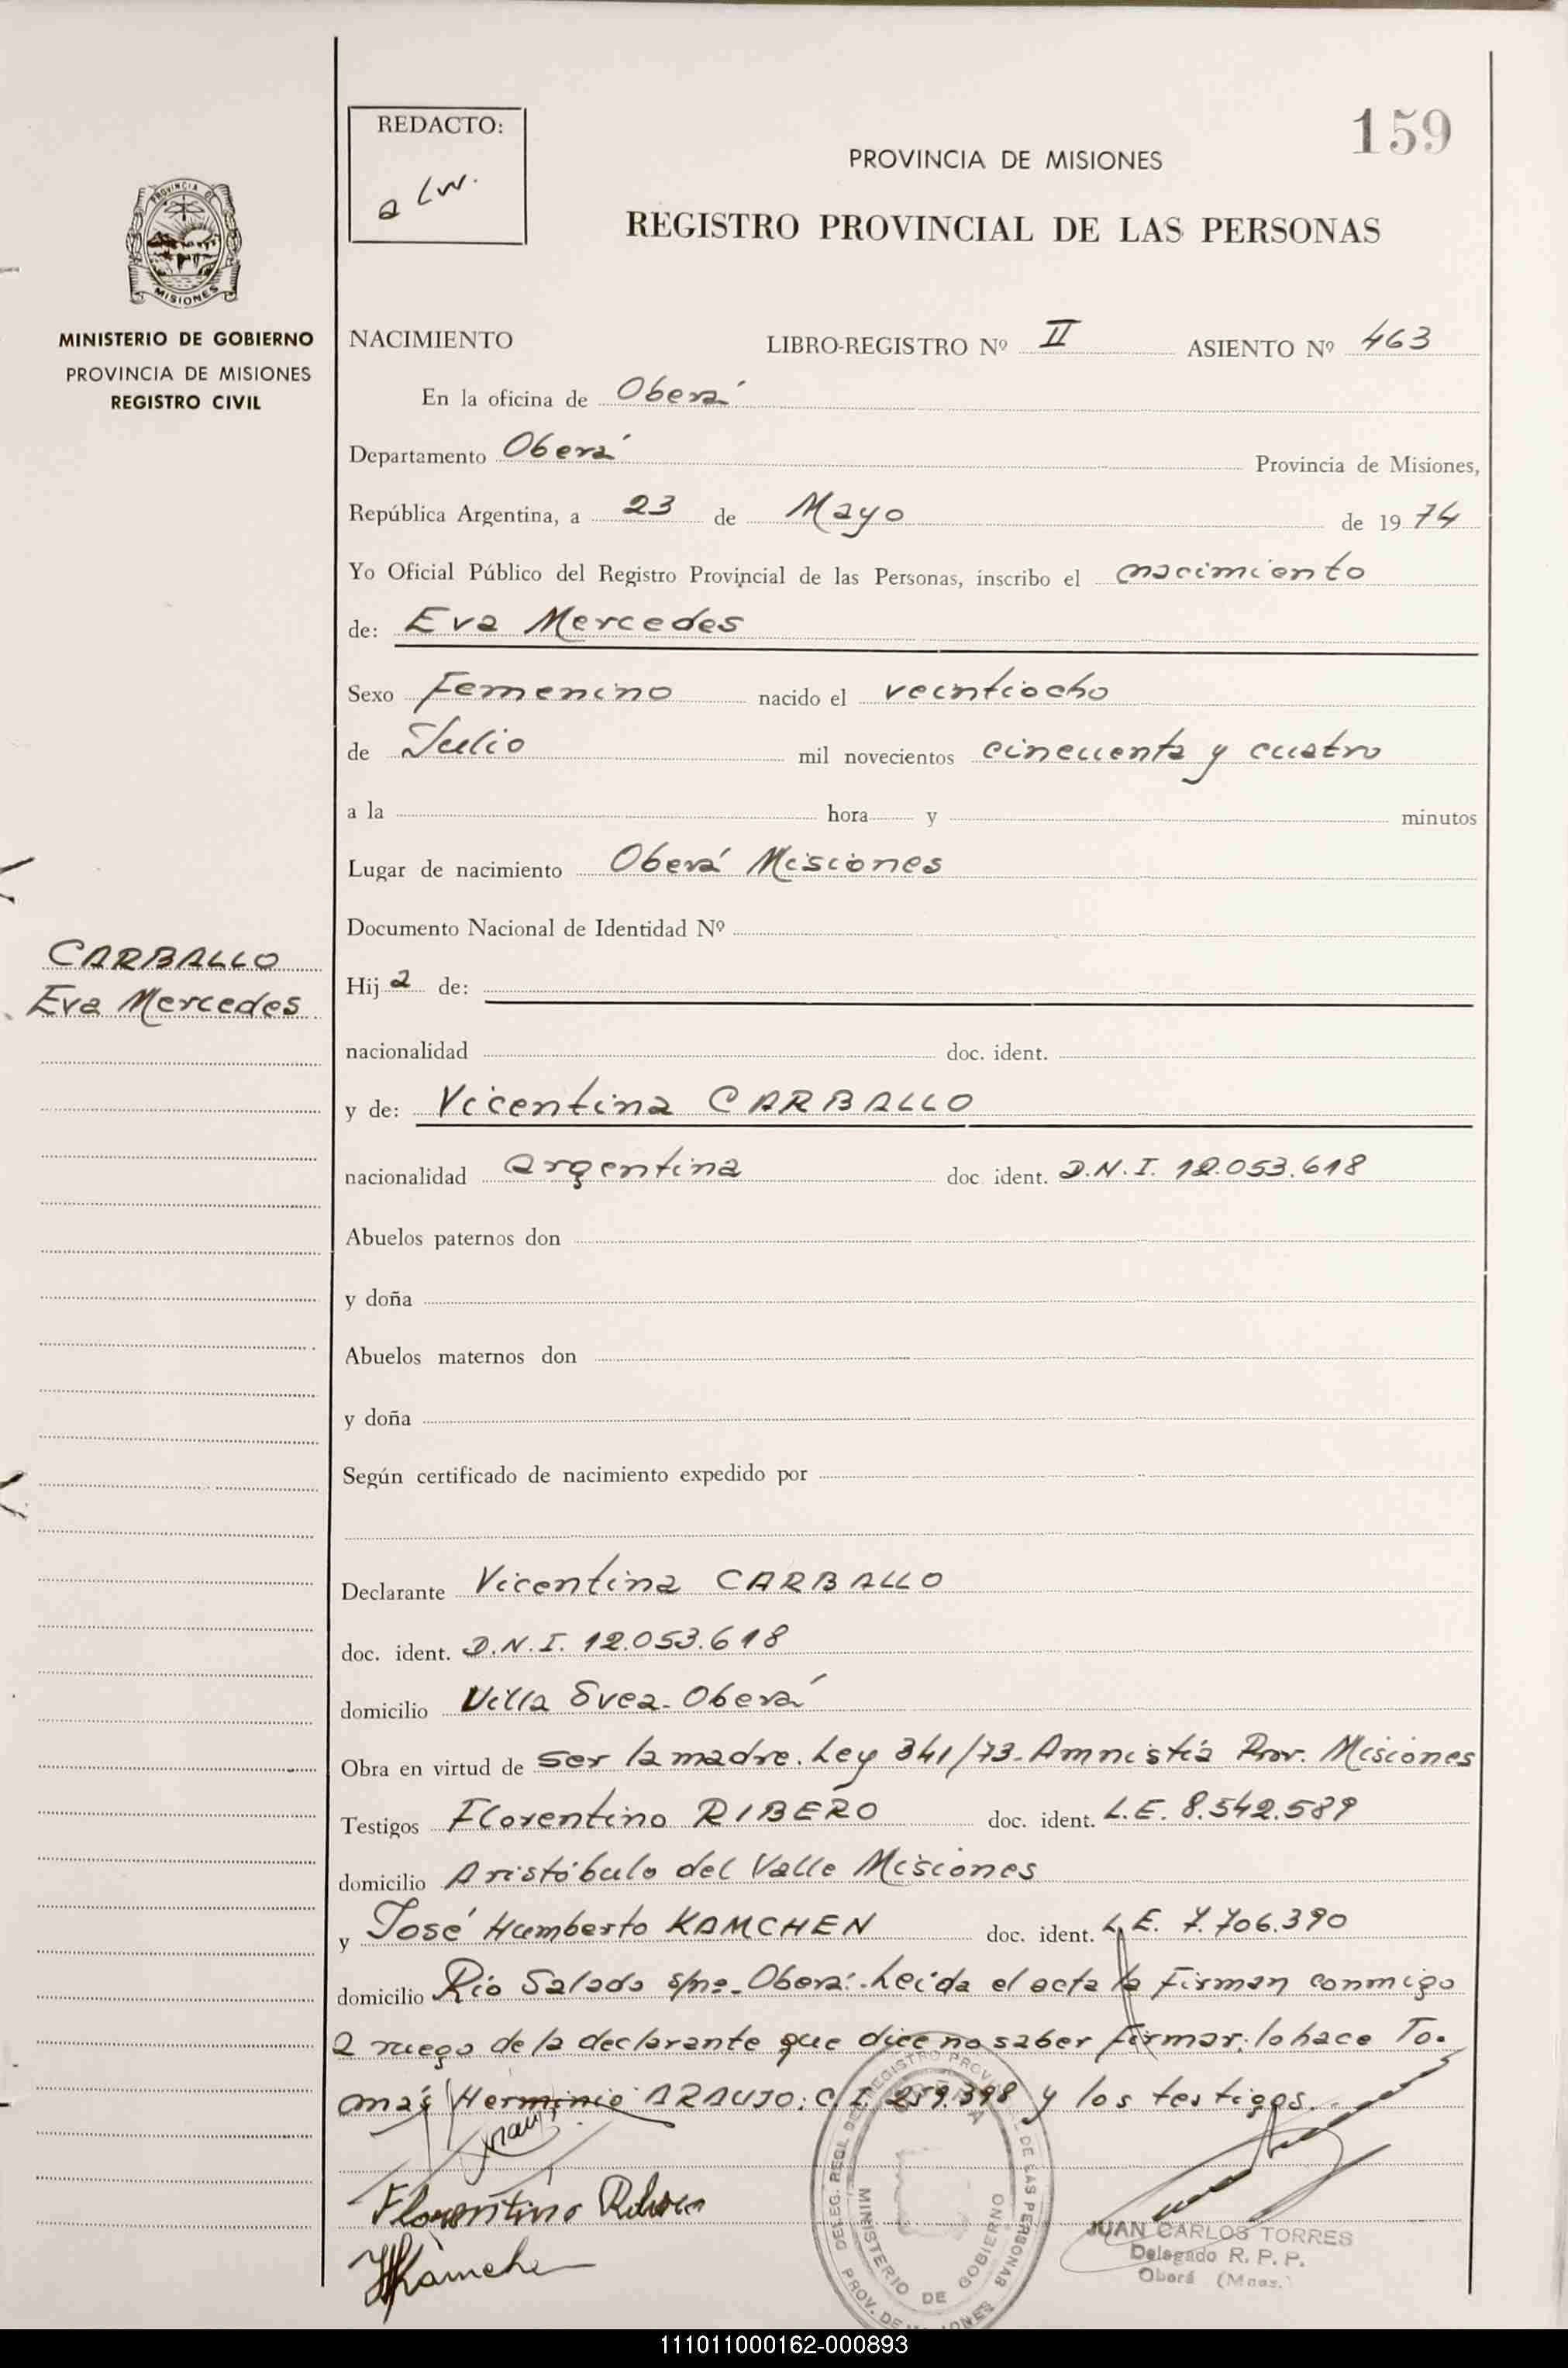 159
REDACTO:
a Lw.
PROVINCIA DE MISIONES
REGISTRO PROVINCIAL DE LAS PERSONAS
PROVINCIA DE
MISIONES
MINISTERIO DE GOBIERNO
PROVINCIA DE MISIONES
REGISTRO CIVIL
CARBALLO
Eva Mercedes
NACIMIENTO LIBRO-REGISTRO Nº II ASIENTO Nº 463
En la oficina de Oberá
Departamento Oberá Provincia de Misiones,
República Argentina, a 23 de Mayo de 1974
Yo Oficial Público del Registro Provincial de las Personas, inscribo el nacimiento
de: Eva Mercedes
Sexo Femenino nacido el veintiocho
de Julio mil novecientos cincuenta y cuatro
a la hora y minutos
Lugar de nacimiento Oberá Misiones
Documento Nacional de Identidad Nº
Hij a de:
nacionalidad doc. ident.
y de: Vicentina CARBALLO
nacionalidad argentina doc. ident. D.N.I. 12.053.618
Abuelos paternos don
y doña
Abuelos maternos don
y doña
Según certificado de nacimiento expedido por
Declarante Vicentina CARBALLO
doc. ident. D.N.I. 12.053.618
domicilio Villa Svea - Oberá
Obra en virtud de ser la madre. Ley 341/73 - Amnistía Prov. Misiones
Testigos Florentino RIBERO doc. ident. L.E. 8.542.589
domicilio Aristóbulo del Valle Misiones
y José Humberto KAMCHEN doc. ident. L.E. 7.706.390
domicilio Río Salado s/nº - Oberá. Leída el acta la firman conmigo
a ruego de la declarante que dice no saber firmar, lo hace To-
más Herminio ARAUJO: C.I. 259.398 y los testigos.
Florentino Ribero
HKamchen
DELEG. REGL DEL REGISTRO PROVINCIAL DE LAS PERSONAS
MINISTERIO DE GOBIERNO
PROV. DE MISIONES
JUAN CARLOS TORRES
Delegado R. P. P.
Oberá (Mnes.)
111011000162-000893